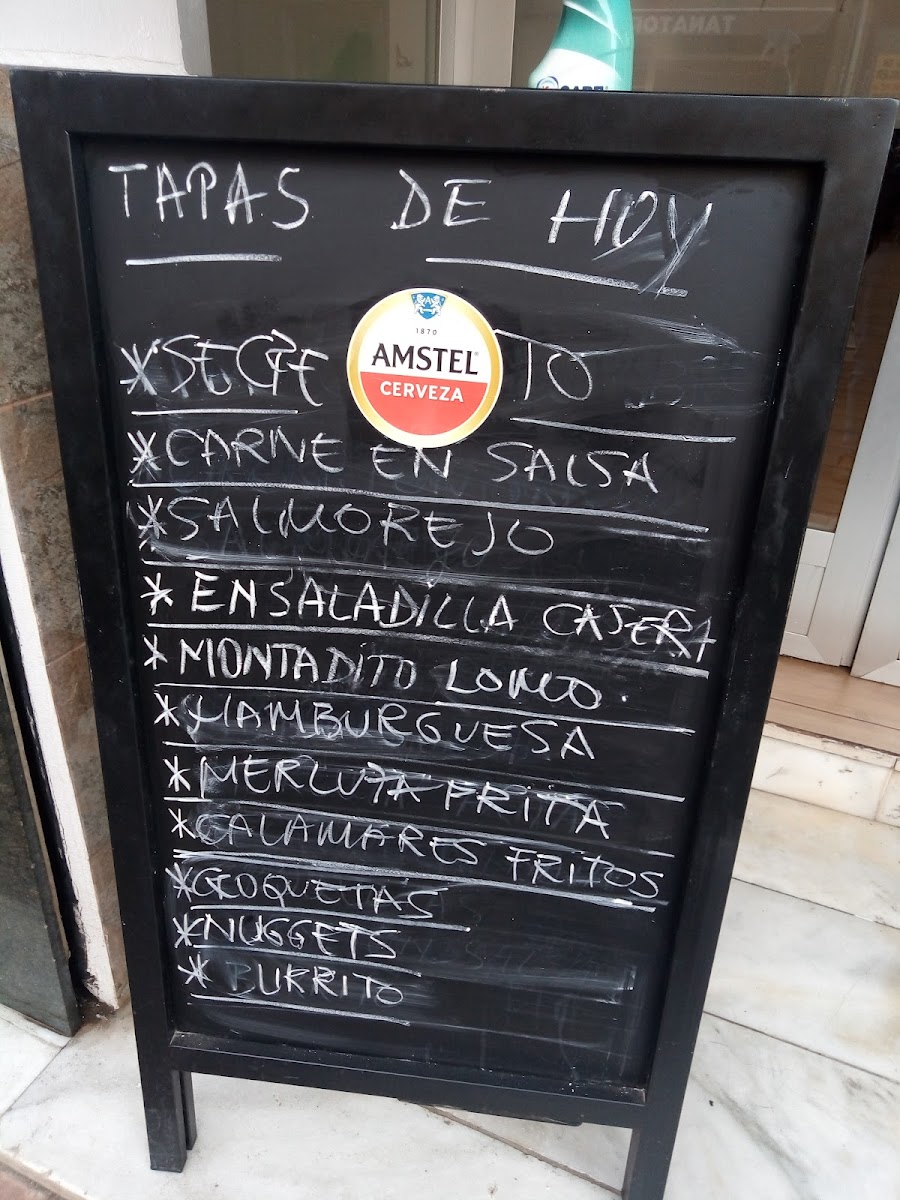 TANATO
CARE
TAPAS DE HOY
1870
AMSTEL
CERVEZA
*SECRE TO
*CARNE EN SALSA
*SALMOREJO
*ENSALADILLA CASERA
*MONTADITO LOMO.
*HAMBURGUESA
*MERLUZA FRITA
*CALAMARES FRITOS
*CROQUETAS
*NUGGETS
*BURRITO